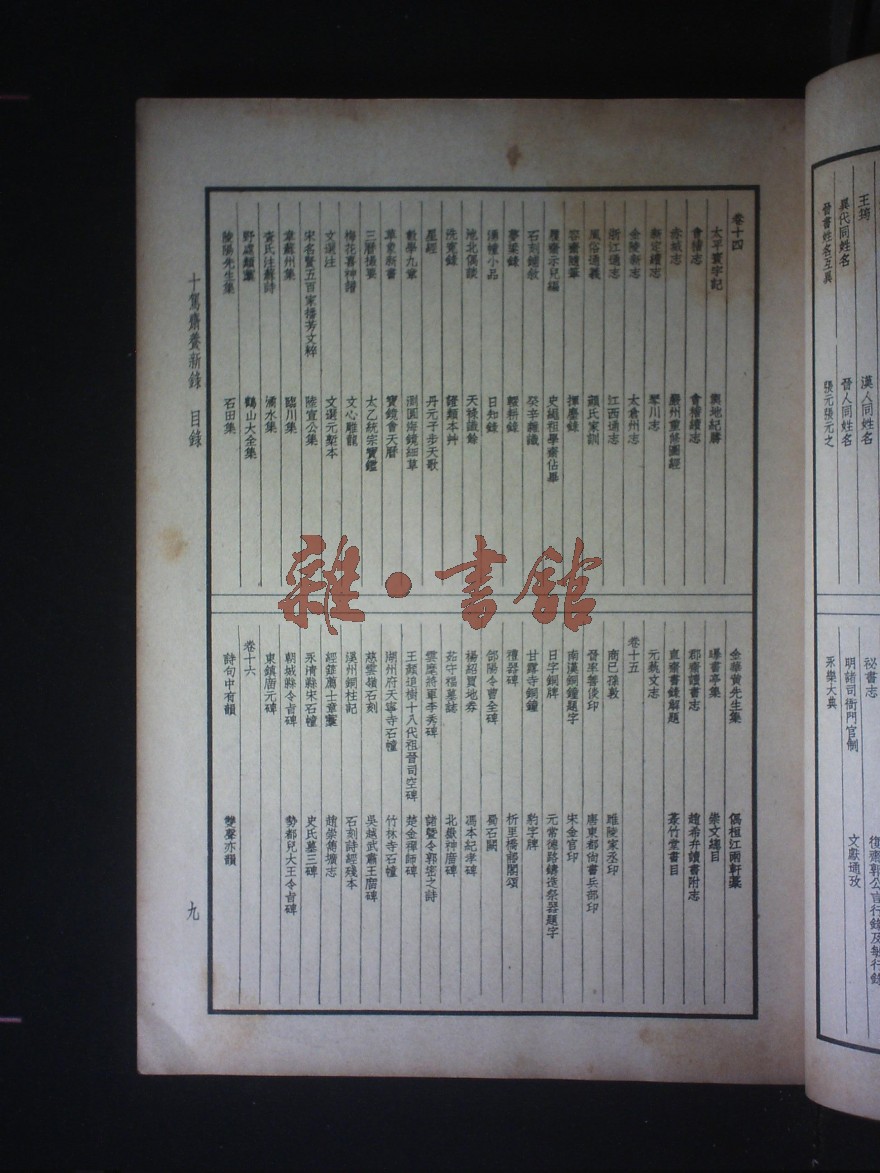 卷十四
太平寰宇記
輿地紀勝
會稽志
會稽續志
赤城志
嚴州重修圖經
新定續志
琴川志
金陵新志
太倉州志
浙江通志
江西通志
風俗通義
顏氏家訓
容齋隨筆
揮麈錄
履齋示兒編
史繩祖學齋佔畢
石刻鋪敘
癸辛雜識
夢粱錄
輟耕錄
湧幢小品
日知錄
池北偶談
天祿識餘
洗冤錄
證類本艸
星經
丹元子步天歌
數學九章
測圓海鏡細草
革象新書
寶鏡會天曆
三曆撮要
太乙統宗寶鑑
梅花喜神譜
文心雕龍
文選注
文選元槧本
宋名賢五百家播芳文粹
陸宣公集
韋蘇州集
臨川集
查氏注蘇詩
潏水集
野處類藁
鶴山大全集
陵陽先生集
石田集
金華黃先生集
僑桓江雨軒藁
曝書亭集
崇文總目
郡齋讀書志
趙希弁讀書附志
直齋書錄解題
菉竹堂書目
元藝文志
卷十五
商己孫敦
睢陵家丞印
晉率善倓印
唐東都尚書兵部印
南漢銅鐘題字
宋金官印
日字銅牌
元常德路鑄造祭器題字
甘露寺銅鐘
豹字牌
禮器碑
析里橋郙閣頌
郃陽令曹全碑
蜀石闕
楊紹買地券
馮本紀孝碑
茹守福墓誌
北嶽神廟碑
雲麾將軍李秀碑
諸暨令郭密之詩
王顏追樹十八代祖晉司空碑
楚金禪師碑
湖州府天寧寺石幢
竹林寺石幢
慈雲嶺石刻
吳越武肅王廟碑
溪州銅柱記
石刻詩經殘本
經筵薦士章藁
趙崇雋壙志
永濟縣宋石幢
史氏墓三碑
朝城縣令旨碑
勢都兒大王令旨碑
東鎮唐元碑
卷十六
詩句中有韻
雙聲亦韻
十駕齋養新錄　目錄
九
王鳿
漢人同姓名
異代同姓名
晉人同姓名
晉書姓名互異
張元張元之
祕書志
復齋郭公言行錄及敏行錄
明諸司衙門官制
文獻通攷
永樂大典
雜·書館